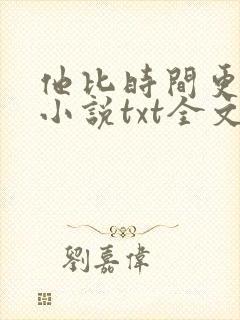 他比時間更
小說txt全文
劉嘉偉